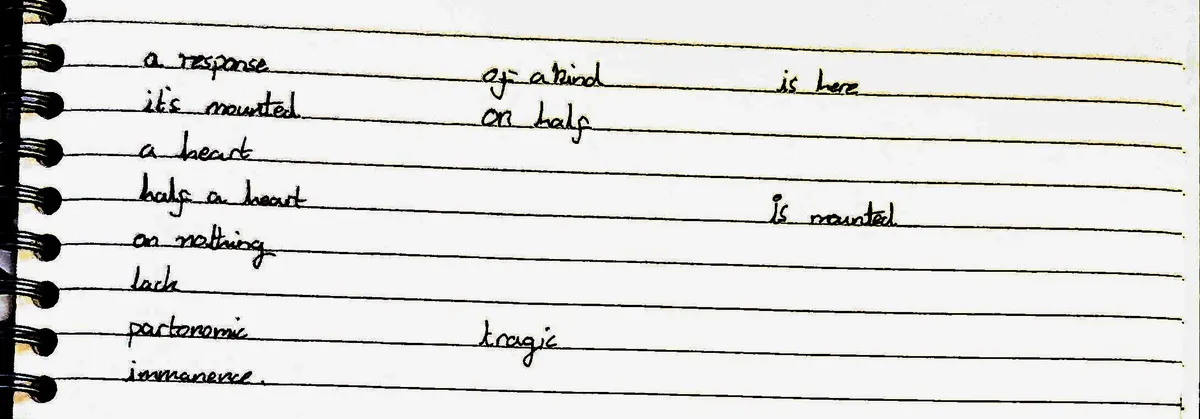 a response of a kind is here
it's mounted on half
a heart
half a heart is mounted
on nothing
lack
partonomic tragic
immanence.